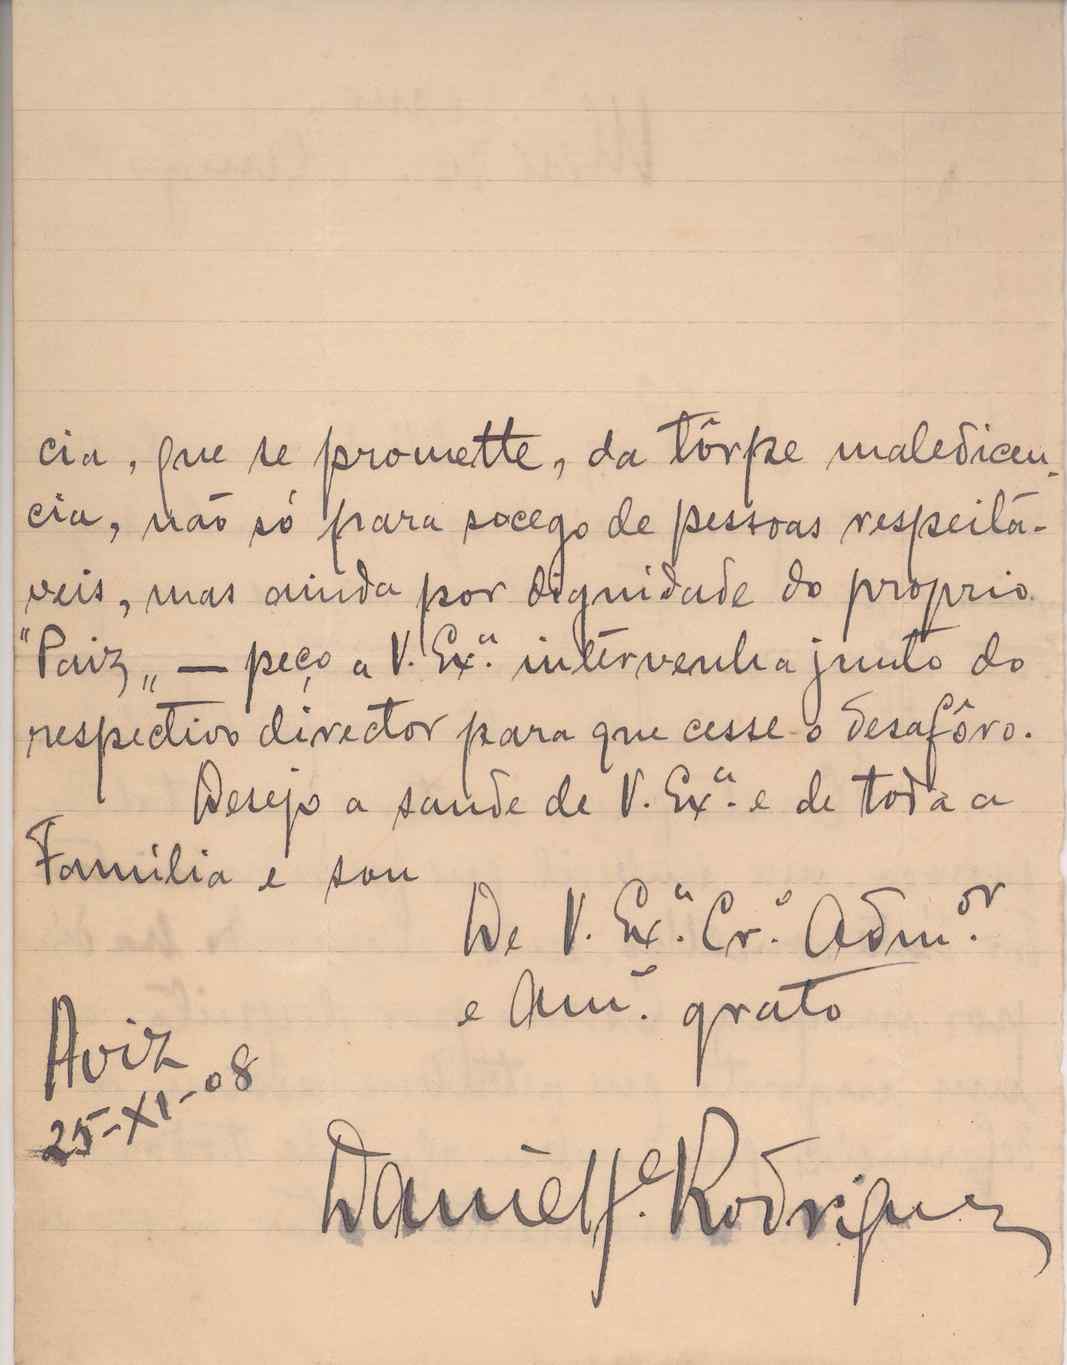 cia, que se promette, da tôrpe maledicen-
cia, não só para socego de pessoas respeitá-
veis, mas ainda por dignidade do proprio
"Paiz„ — peço a V. Exª. intervenha junto do
respectivo director para que cesse o desafôro.
Desejo a saude de V. Exª. e de toda a
Família e sou
De V. Exª. Crº. Admor.
e Amº. grato
Aviz
25-XI-08
Daniel Je. Rodrigues